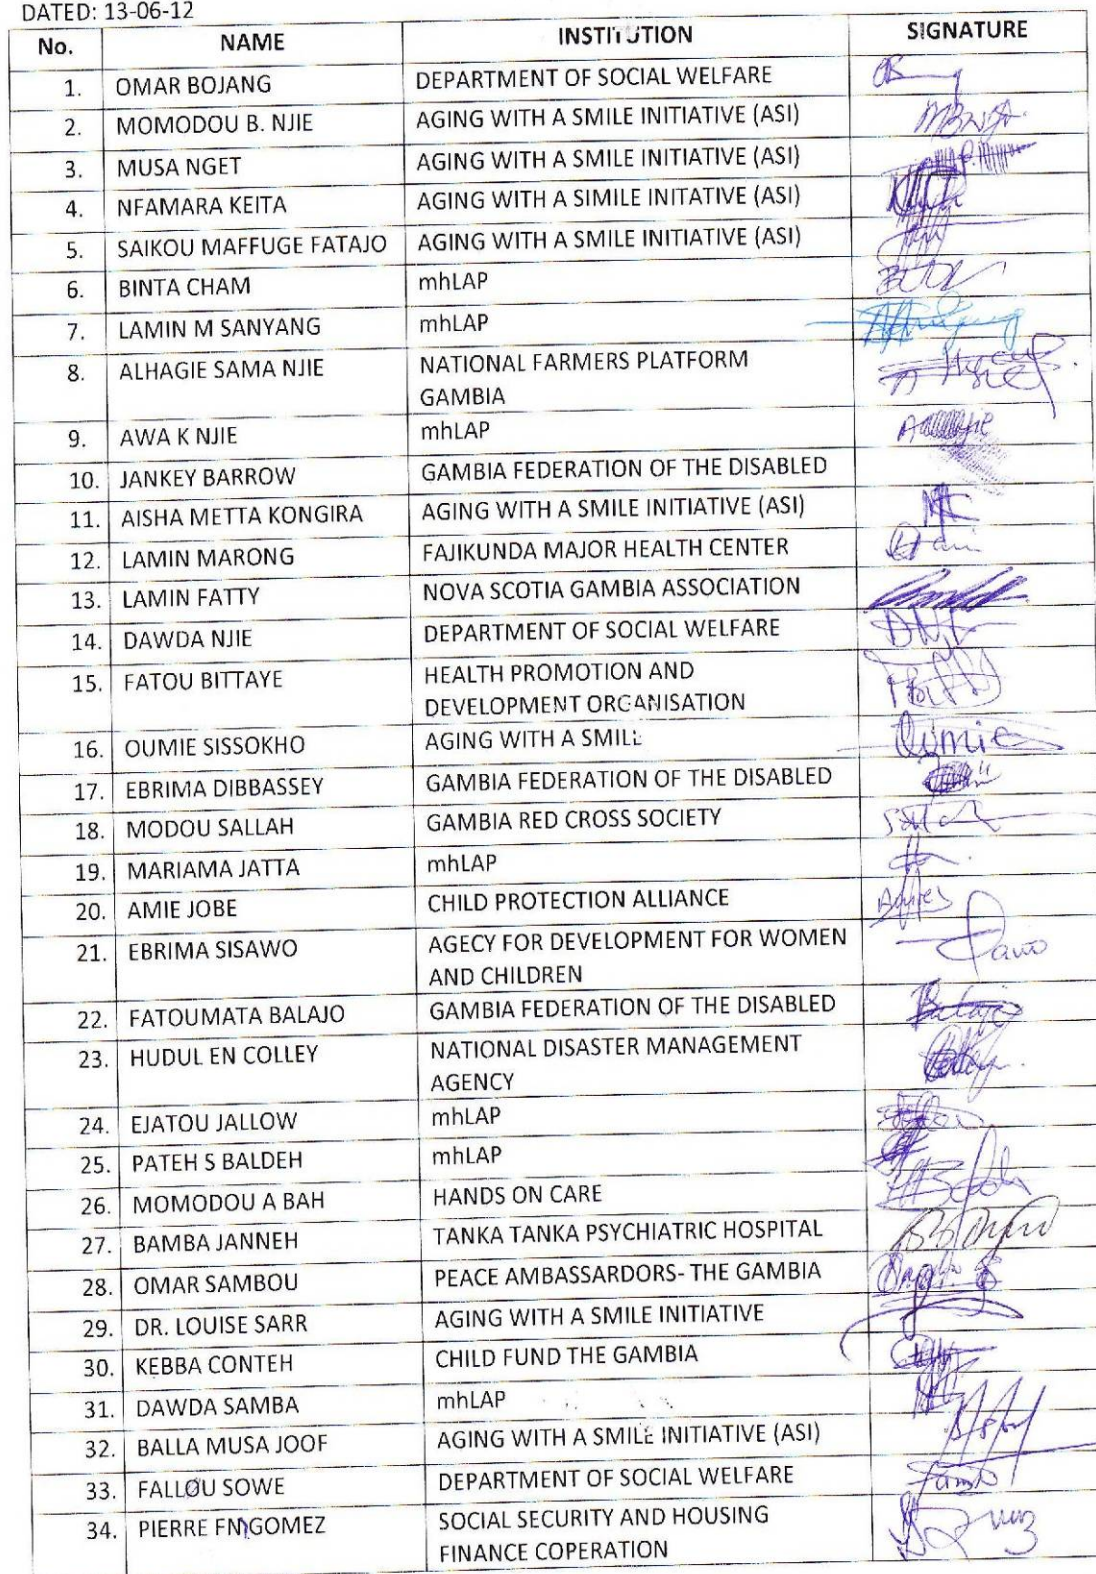 DATED: 13-06-12
No. NAME INSTITUTION SIGNATURE
1. OMAR BOJANG DEPARTMENT OF SOCIAL WELFARE OB
2. MOMODOU B. NJIE AGING WITH A SMILE INITIATIVE (ASI)
3. MUSA NGET AGING WITH A SIMILE INITIATIVE (ASI)
4. NFAMARA KEITA AGING WITH A SIMILE INITIATIVE (ASI)
5. SAIKOU MAFFUGE FATAJO AGING WITH A SMILE INITIATIVE (ASI)
6. BINTA CHAM mhLAP
7. LAMIN M SANYANG mhLAP
8. ALHAGIE SAMA NJIE NATIONAL FARMERS PLATFORM
GAMBIA
9. AWA K NJIE mhLAP
10. JANKEY BARROW GAMBIA FEDERATION OF THE DISABLED
11. AISHA METTA KONGIRA AGING WITH A SMILE INITIATIVE (ASI)
12. LAMIN MARONG FAJIKUNDA MAJOR HEALTH CENTER
13. LAMIN FATTY NOVA SCOTIA GAMBIA ASSOCIATION
14. DAWDA NJIE DEPARTMENT OF SOCIAL WELFARE
15. FATOU BITTAYE HEALTH PROMOTION AND
DEVELOPMENT ORGANISATION
16. OUMIE SISSOKHO AGING WITH A SMILE Oumie
17. EBRIMA DIBBASSEY GAMBIA FEDERATION OF THE DISABLED
18. MODOU SALLAH GAMBIA RED CROSS SOCIETY
19. MARIAMA JATTA mhLAP
20. AMIE JOBE CHILD PROTECTION ALLIANCE
21. EBRIMA SISAWO AGECY FOR DEVELOPMENT FOR WOMEN
AND CHILDREN
22. FATOUMATA BALAJO GAMBIA FEDERATION OF THE DISABLED
23. HUDUL EN COLLEY NATIONAL DISASTER MANAGEMENT
AGENCY
24. EJATOU JALLOW mhLAP
25. PATEH S BALDEH mhLAP
26. MOMODOU A BAH HANDS ON CARE
27. BAMBA JANNEH TANKA TANKA PSYCHIATRIC HOSPITAL
28. OMAR SAMBOU PEACE AMBASSARDORS- THE GAMBIA
29. DR. LOUISE SARR AGING WITH A SMILE INITIATIVE
30. KEBBA CONTEH CHILD FUND THE GAMBIA
31. DAWDA SAMBA mhLAP
32. BALLA MUSA JOOF AGING WITH A SMILE INITIATIVE (ASI)
33. FALLOU SOWE DEPARTMENT OF SOCIAL WELFARE
34. PIERRE FN GOMEZ SOCIAL SECURITY AND HOUSING
FINANCE COPERATION